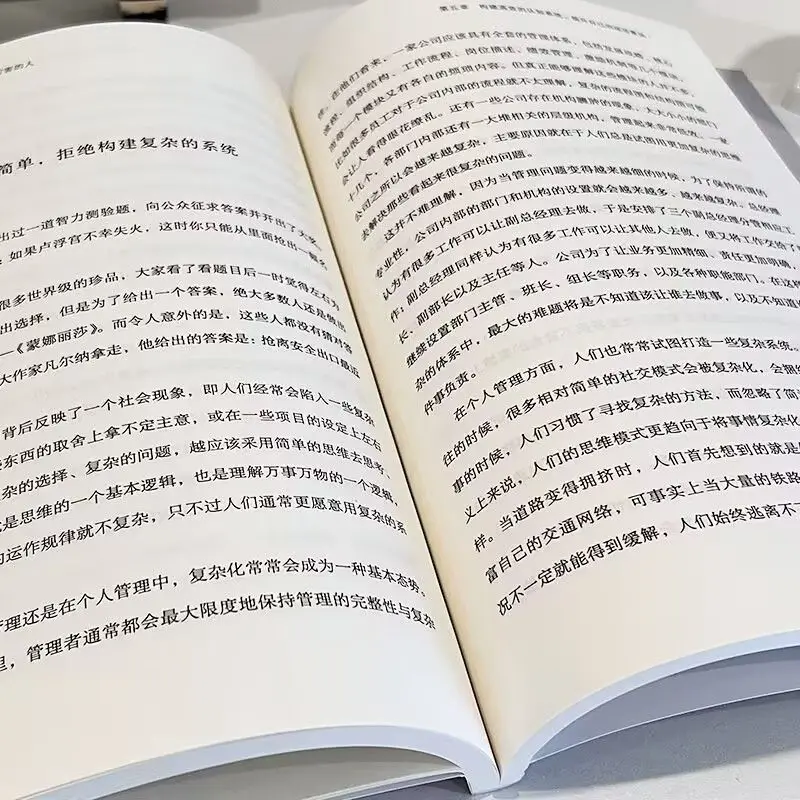 害的人
简单，拒绝构建复杂的系统
出过一道智力测验题，向公众征求答案并开出了大奖
：如果卢浮宫不幸失火，这时你只能从里面抢出一幅名
很多世界级的珍品，大家看了看题目后一时觉得左右为
出选择，但是为了给出一个答案，绝大多数人还是做出
—《蒙娜丽莎》。而令人意外的是，这些人都没有猜对答
大作家凡尔纳拿走，他给出的答案是：抢离安全出口最近
背后反映了一个社会现象，即人们经常会陷入一些复杂
些东西的取舍上拿不定主意，或在一些项目的设定上左右
杂的选择、复杂的问题，越应该采用简单的思维去思考，
就是思维的一个基本逻辑，也是理解万事万物的一个逻辑，
的运作规律就不复杂，只不过人们通常更愿意用复杂的系
管理还是在个人管理中，复杂化常常会成为一种基本态势。
里，管理者通常都会最大限度地保持管理的完整性与复杂
第五章
性，在他们看来，一家公司应该具有全套的管理体系，包括发展战略、核心
流程、组织结构、工作流程、岗位描述、绩效管理、激励机制等几个模块，
而每一个模块又有各自的琐琐内容。但真正能够理解这些模块的人并不多，
比如很多员工对于公司内部的流程就不太理解，复杂的流程图和结构图可能
会让人看得眼花缭乱。还有一些公司存在机构臃肿的现象，大大小小的部门
十几个，各部门内部还有一大堆相关的层级机构，管理起来非常低效。一家
公司之所以会越来越复杂，主要原因就在于人们总是试图用更加复杂的流程
去解决那些看起来很复杂的问题。
这并不难理解，因为当管理问题变得越来越细的时候，为了保持所谓的
专业性，公司内部的部门和机构的设置就会越来越多、越来越复杂，总经理
认为有很多工作可以让副总经理去做，于是安排了三个副总经理分管相应工
作；副总经理同样认为有很多工作可以让其他人去做，便又将工作交给了
长、副部长以及主任等人。公司为了让业务更加精细、责任更加明确，
继续设置部门主管、班长、组长等职务，以及各种职能部门。在这种
杂的体系中，最大的难题将是不知道该让谁去做事，以及不知道
件事负责。
在个人管理方面，人们也常常试图打造一些复杂系统。
往的时候，很多相对简单的社交模式会被复杂化，会拥
事的时候，人们习惯了寻找复杂的方法，而忽略了简
义上来说，人们的思维模式更趋向于将事情复杂化
样。当道路变得拥挤时，人们首先想到的就是
富自己的交通网络，可事实上当大量的铁路
况不一定就能得到缓解，人们始终逃离不